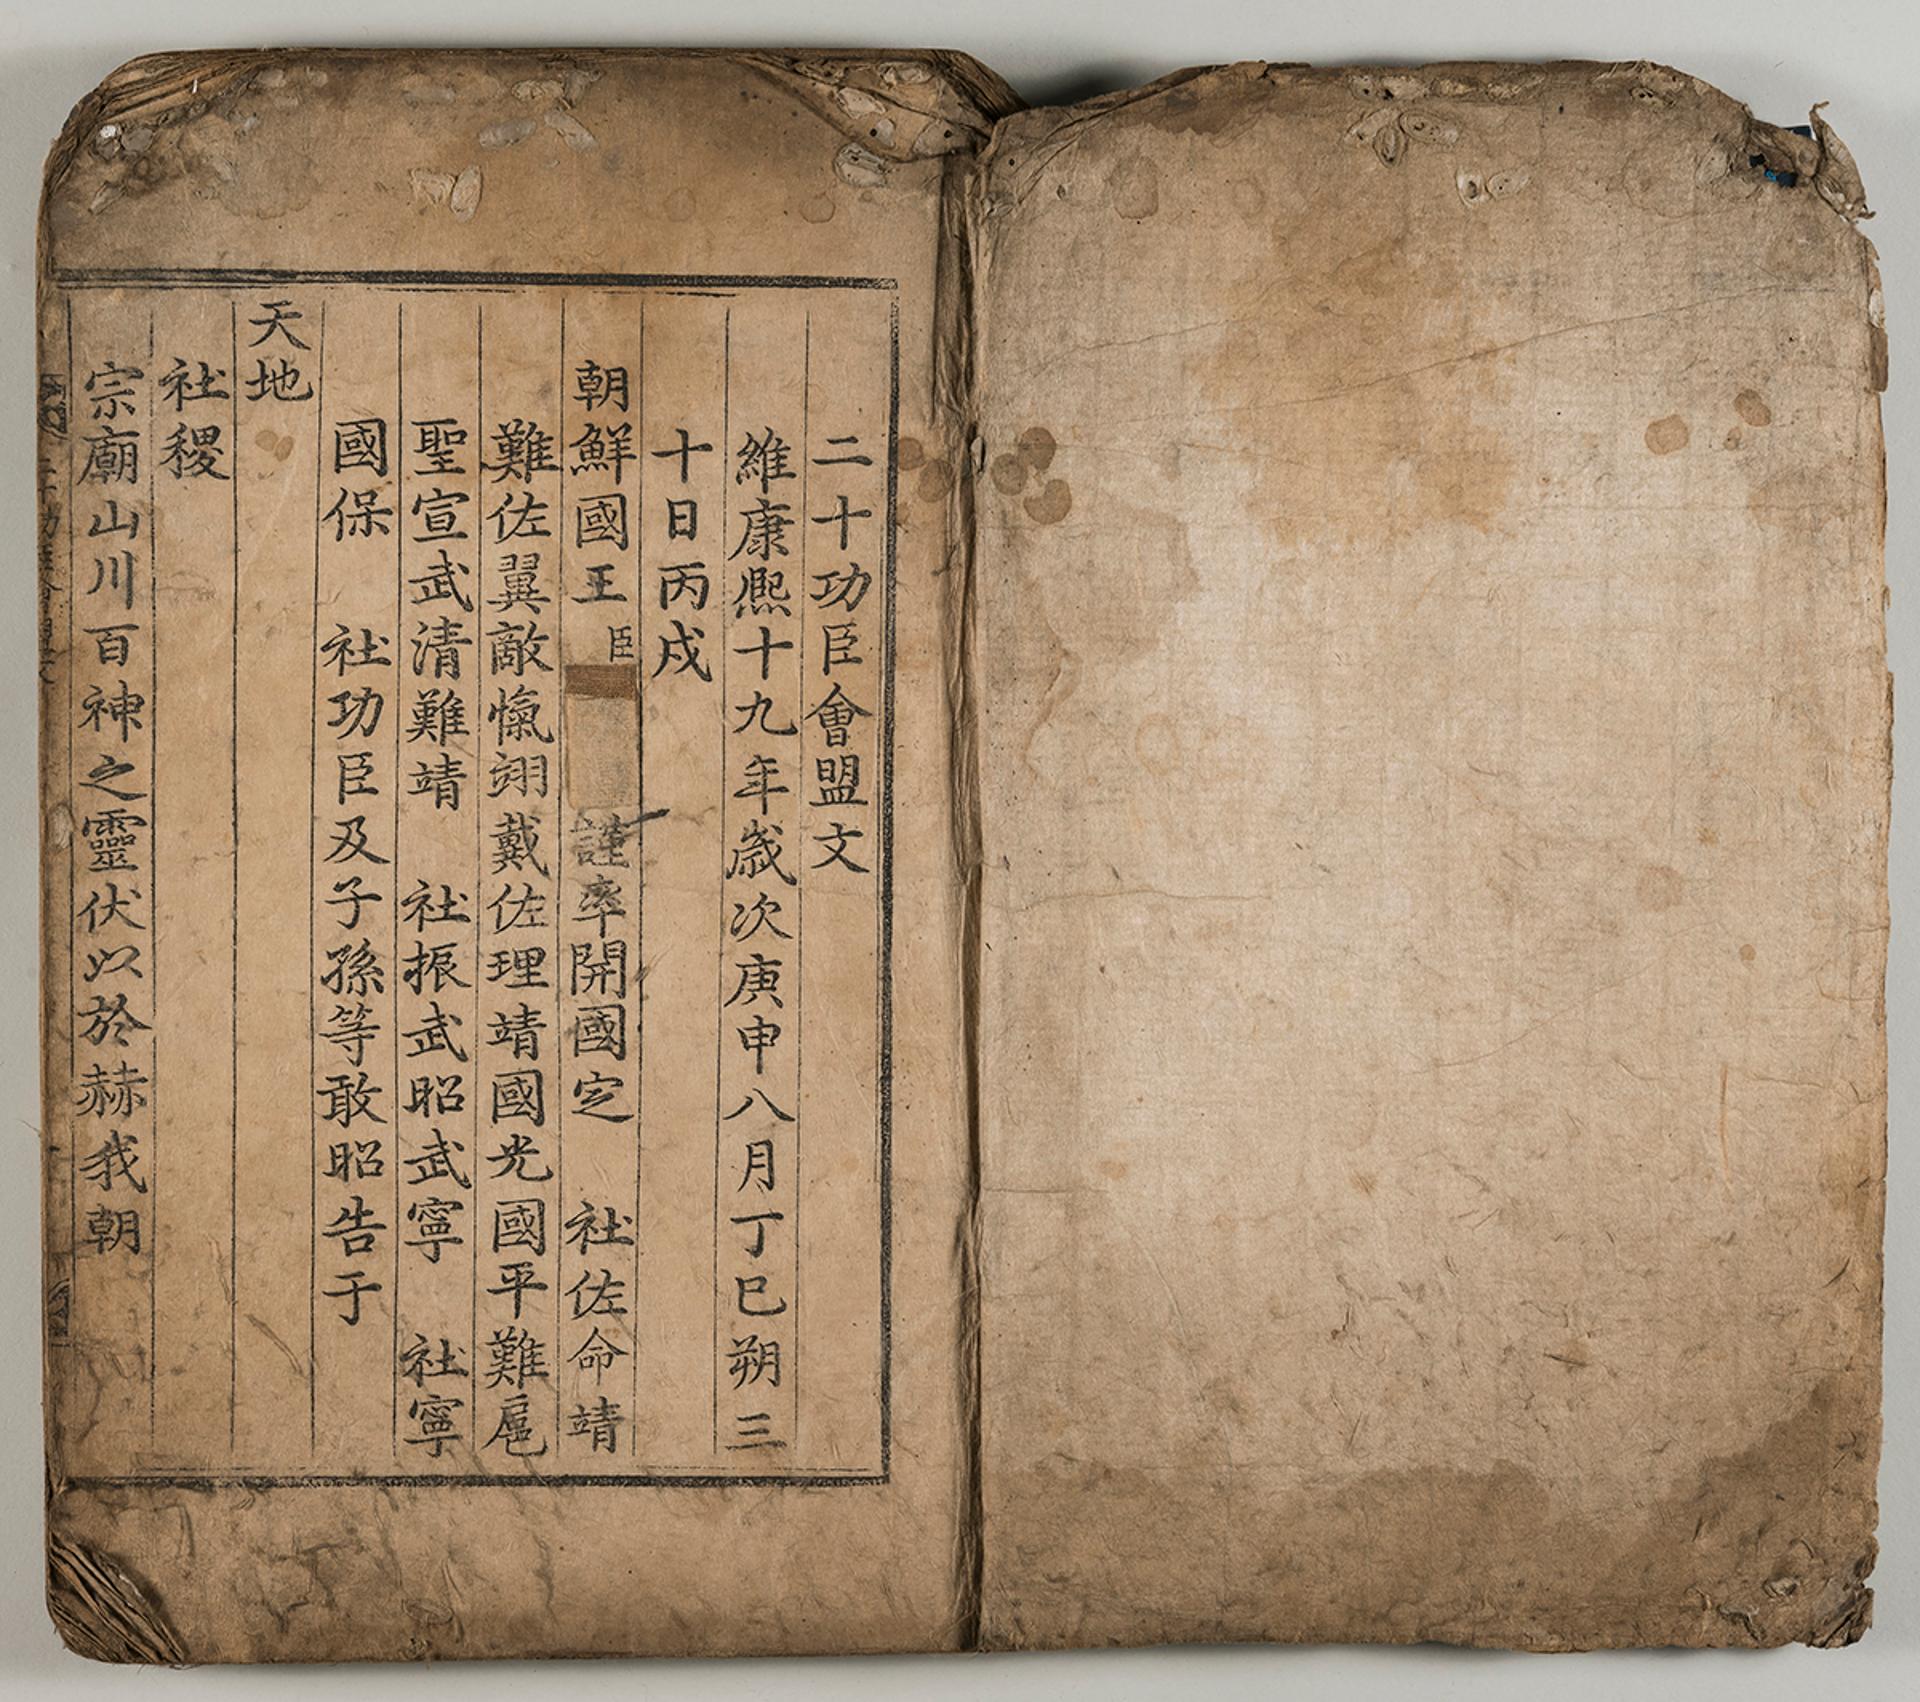 二十功臣會盟文
維康熙十九年歲次庚申八月丁巳朔三
十日丙戌
朝鮮國王臣 謹率開國定 社佐命靖
難佐翼敵愾翊戴佐理靖國光國平難扈
聖宣武清難靖 社振武昭武寧 社寧
國保 社功臣及子孫等敢昭告于
天地
社稷
宗廟山川百神之靈伏以於赫我朝